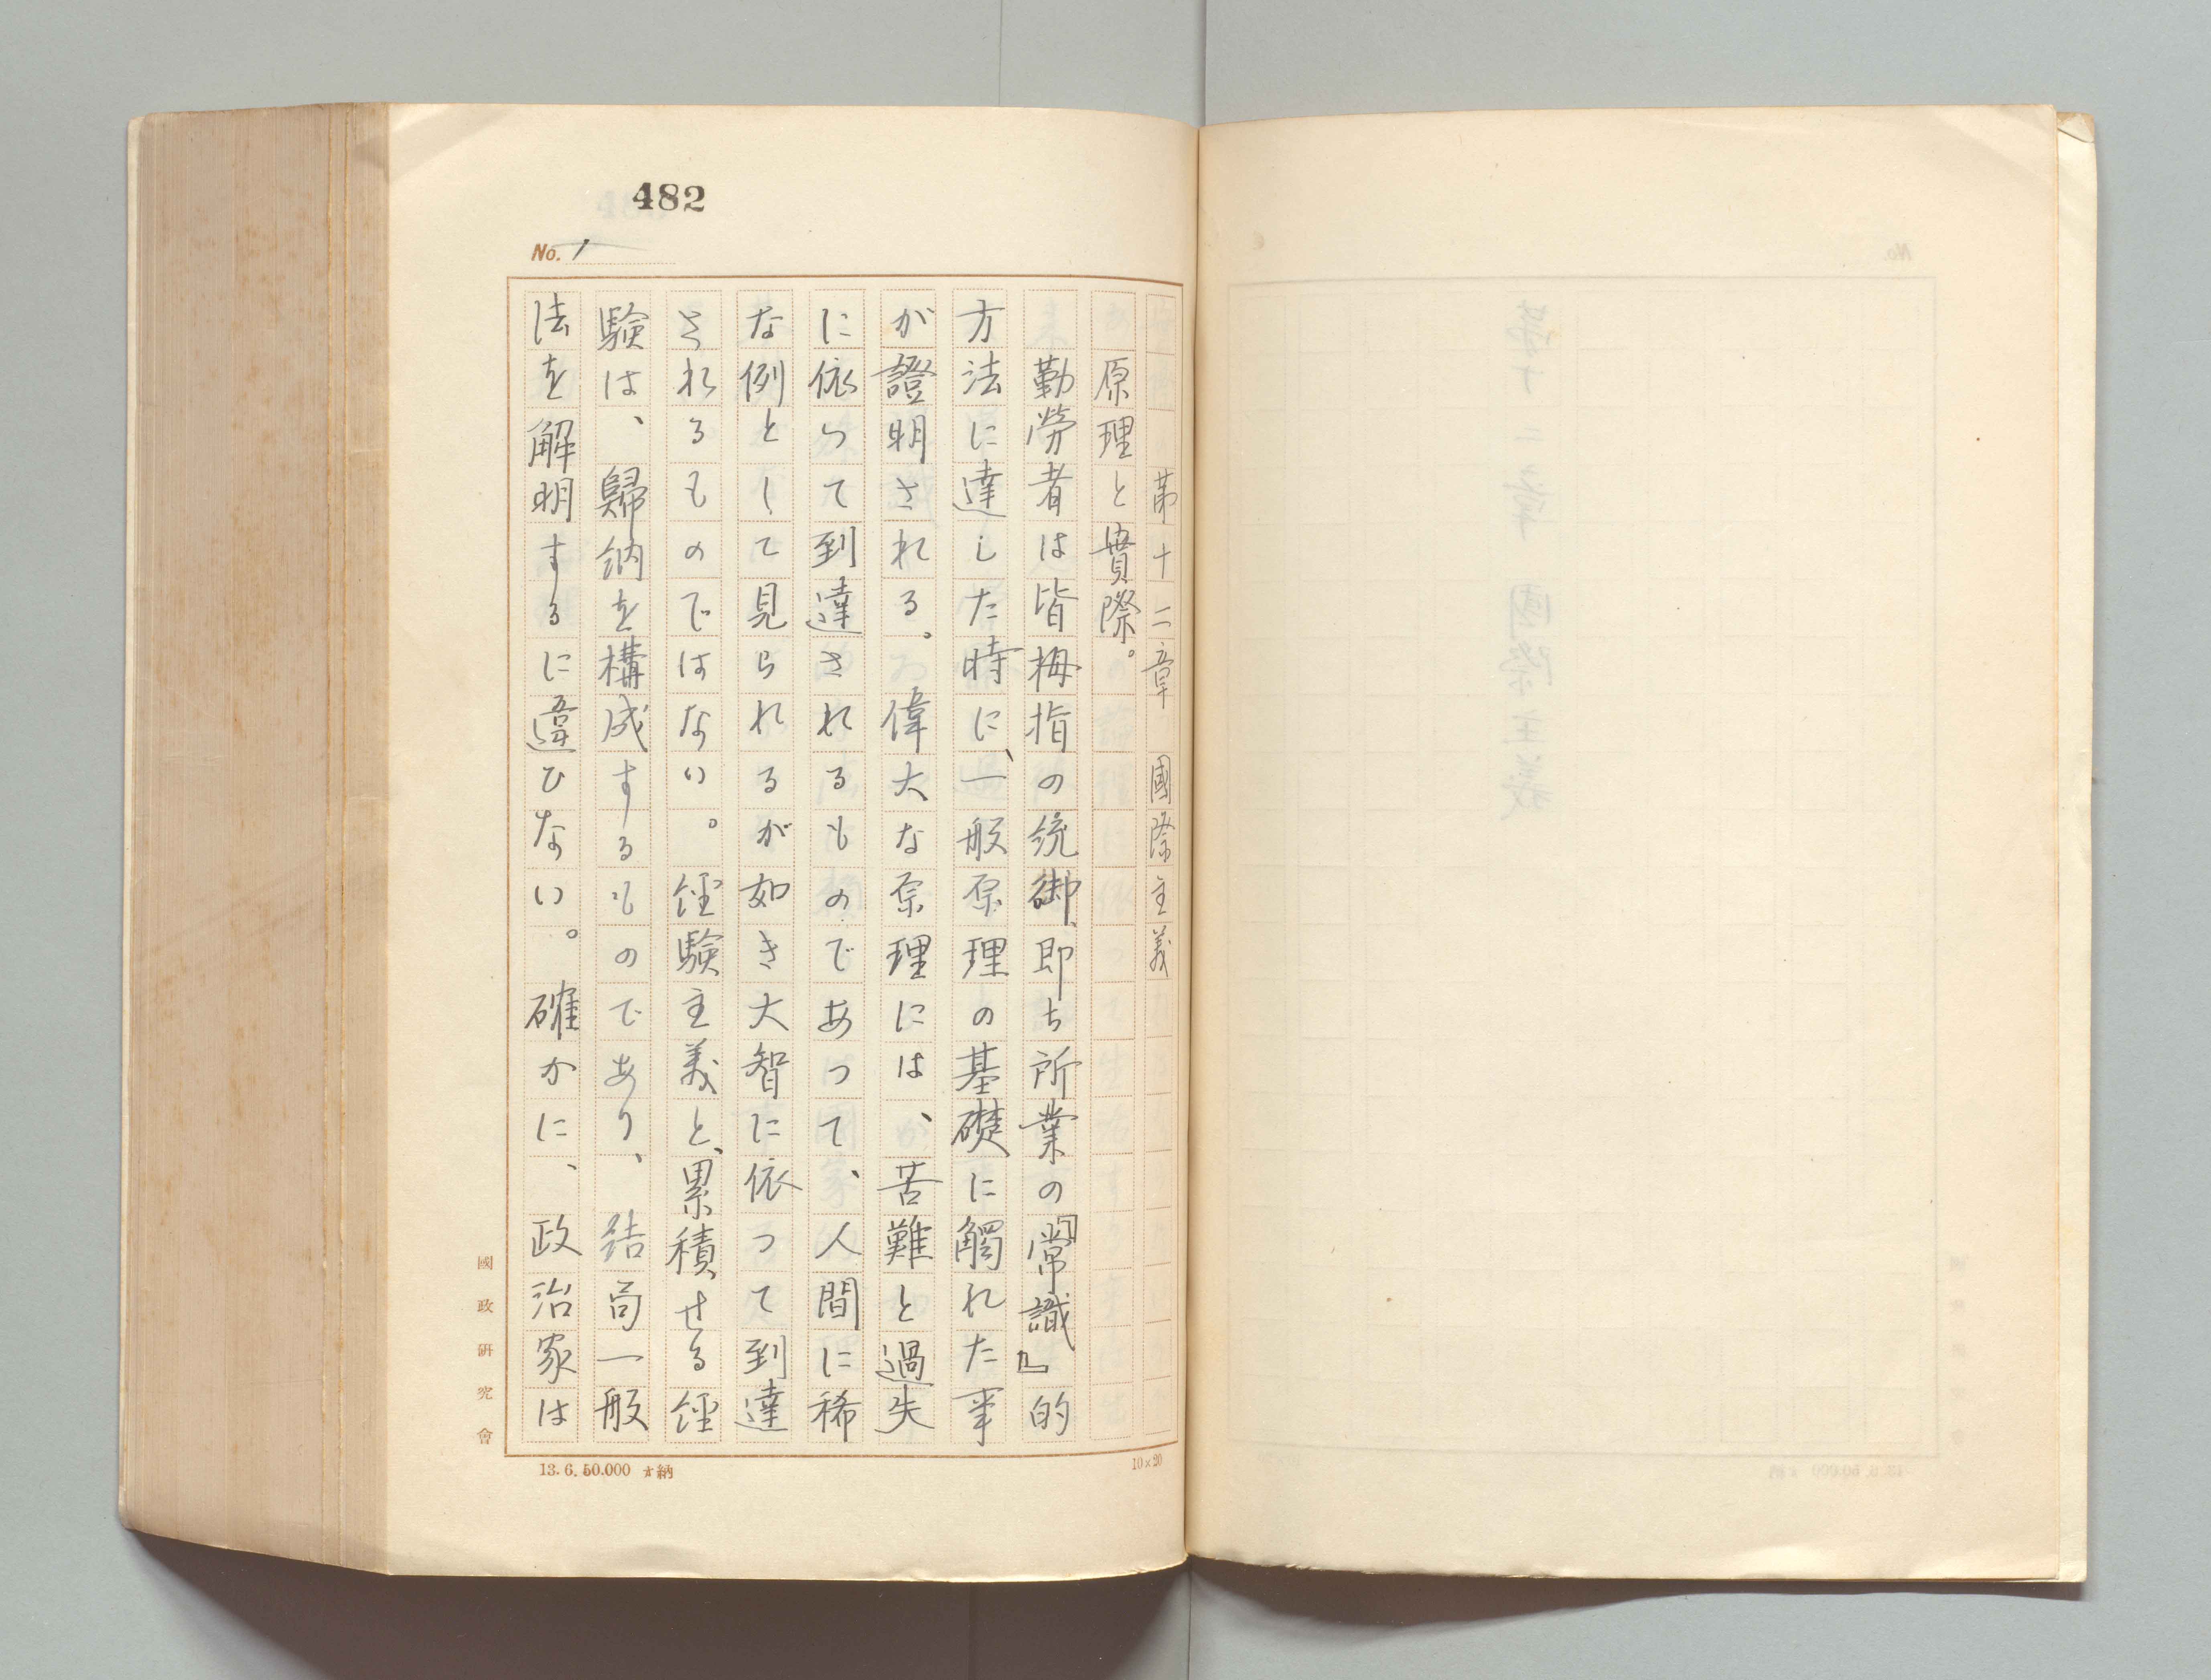 482
No. 1
第十二章 國際主義
原理と實際。
勤勞者は皆栂指の統御、即ち所業の『常識』的
方法に達した時に、一般原理の基礎に觸れた事
が證明される。偉大な原理には、苦難と過失
に依つて到達されるものであつて、人間に稀
な例として見られるが如き大智に依つて到達
されるものではない。經驗主義と、累積せる經
驗は、歸納を構成するものであり、結局一般
法を解明するに違ひない。確かに、政治家は
國政研究會
13.6.50.000 納
10×20